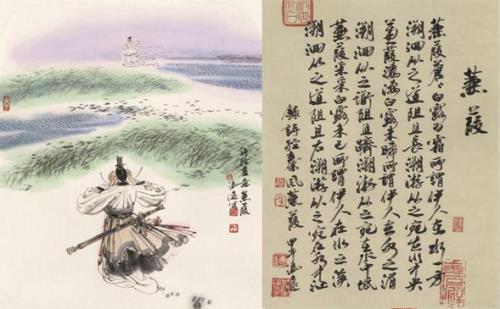 蒹葭
蒹葭蒼〻白露為霜所謂伊人在水一方
溯洄从之道阻且長溯游从之宛在水中央
蒹葭淒淒白露未晞所謂伊人在水之湄
溯洄从之道阻且躋溯游从之宛在水中坻
蒹葭采采白露未已所謂伊人在水之涘
溯洄从之道阻且右溯游从之宛在水中沚
錄詩經秦風蒹葭 甲午
蒹葭